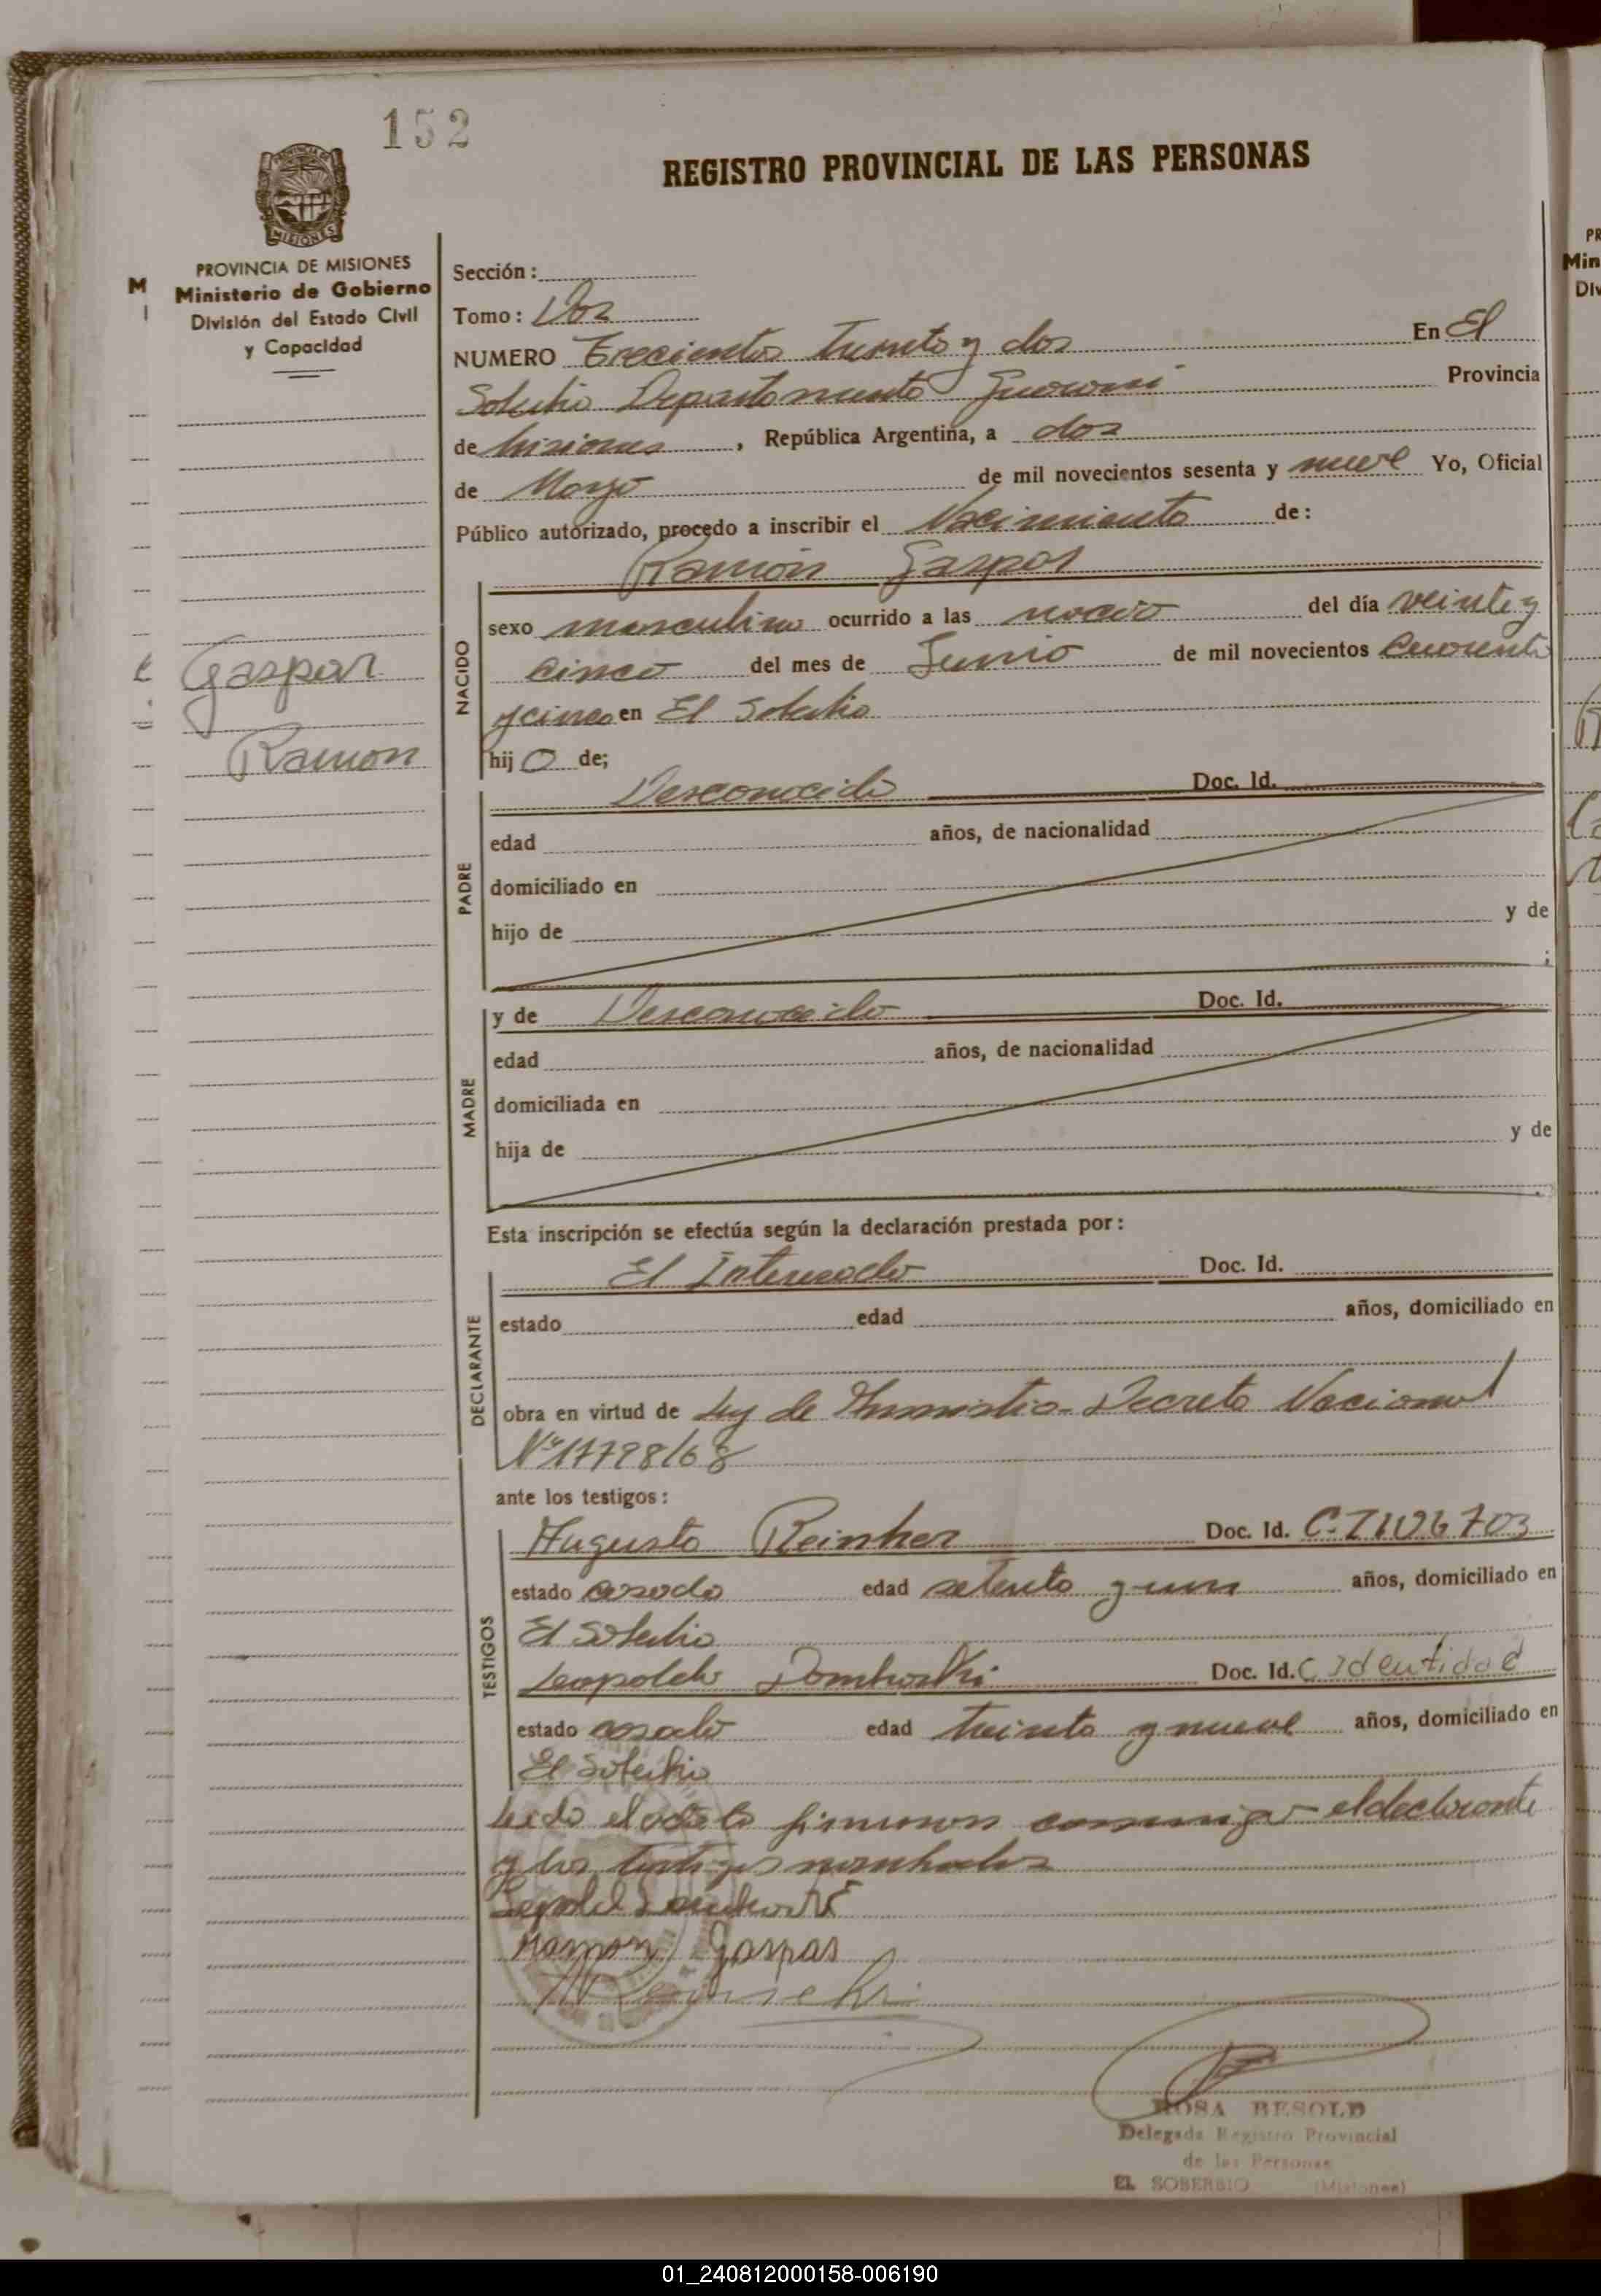 152
REGISTRO PROVINCIAL DE LAS PERSONAS
PROVINCIA DE MISIONES
Ministerio de Gobierno
División del Estado Civil
y Capacidad
Sección:
Tomo: Dos
NUMERO Trecientos Treinta y dos En El
Soberbio Departamento Guarani Provincia
de Misiones, República Argentina, a dos
de Marzo de mil novecientos sesenta y nueve Yo, Oficial
Público autorizado, procedo a inscribir el Nacimiento de:
Ramon Gaspar
NACIDO
sexo masculino ocurrido a las del día veinte y
cinco del mes de Junio de mil novecientos Cuarenta
y cinco en El Soberbio
hijo de;
Gaspar
Ramon
PADRE
Desconocido Doc. Id.
edad años, de nacionalidad
domiciliado en
hijo de y de
;
MADRE
y de Desconocido Doc. Id.
edad años, de nacionalidad
domiciliada en
hija de y de
Esta inscripción se efectúa según la declaración prestada por:
DECLARANTE
El Interesado Doc. Id.
estado edad años, domiciliado en
obra en virtud de Ley de Amnistia - Decreto Nacional
Nº 17798/68
ante los testigos:
TESTIGOS
Augusto Reinher Doc. Id.
estado casado edad setenta y un años, domiciliado en
El Soberbio
Leopoldo Domhoski Doc. Id. C. Identidad
estado casado edad treinta y nueve años, domiciliado en
El Soberbio
Leido el acta la firmaron conmigo el declarante
y los testigos nombrados
Ramon Gaspar
ROSA BESOLD
Delegada Registro Provincial
de las Personas
EL SOBERBIO (Misiones)
01_240812000158-006190